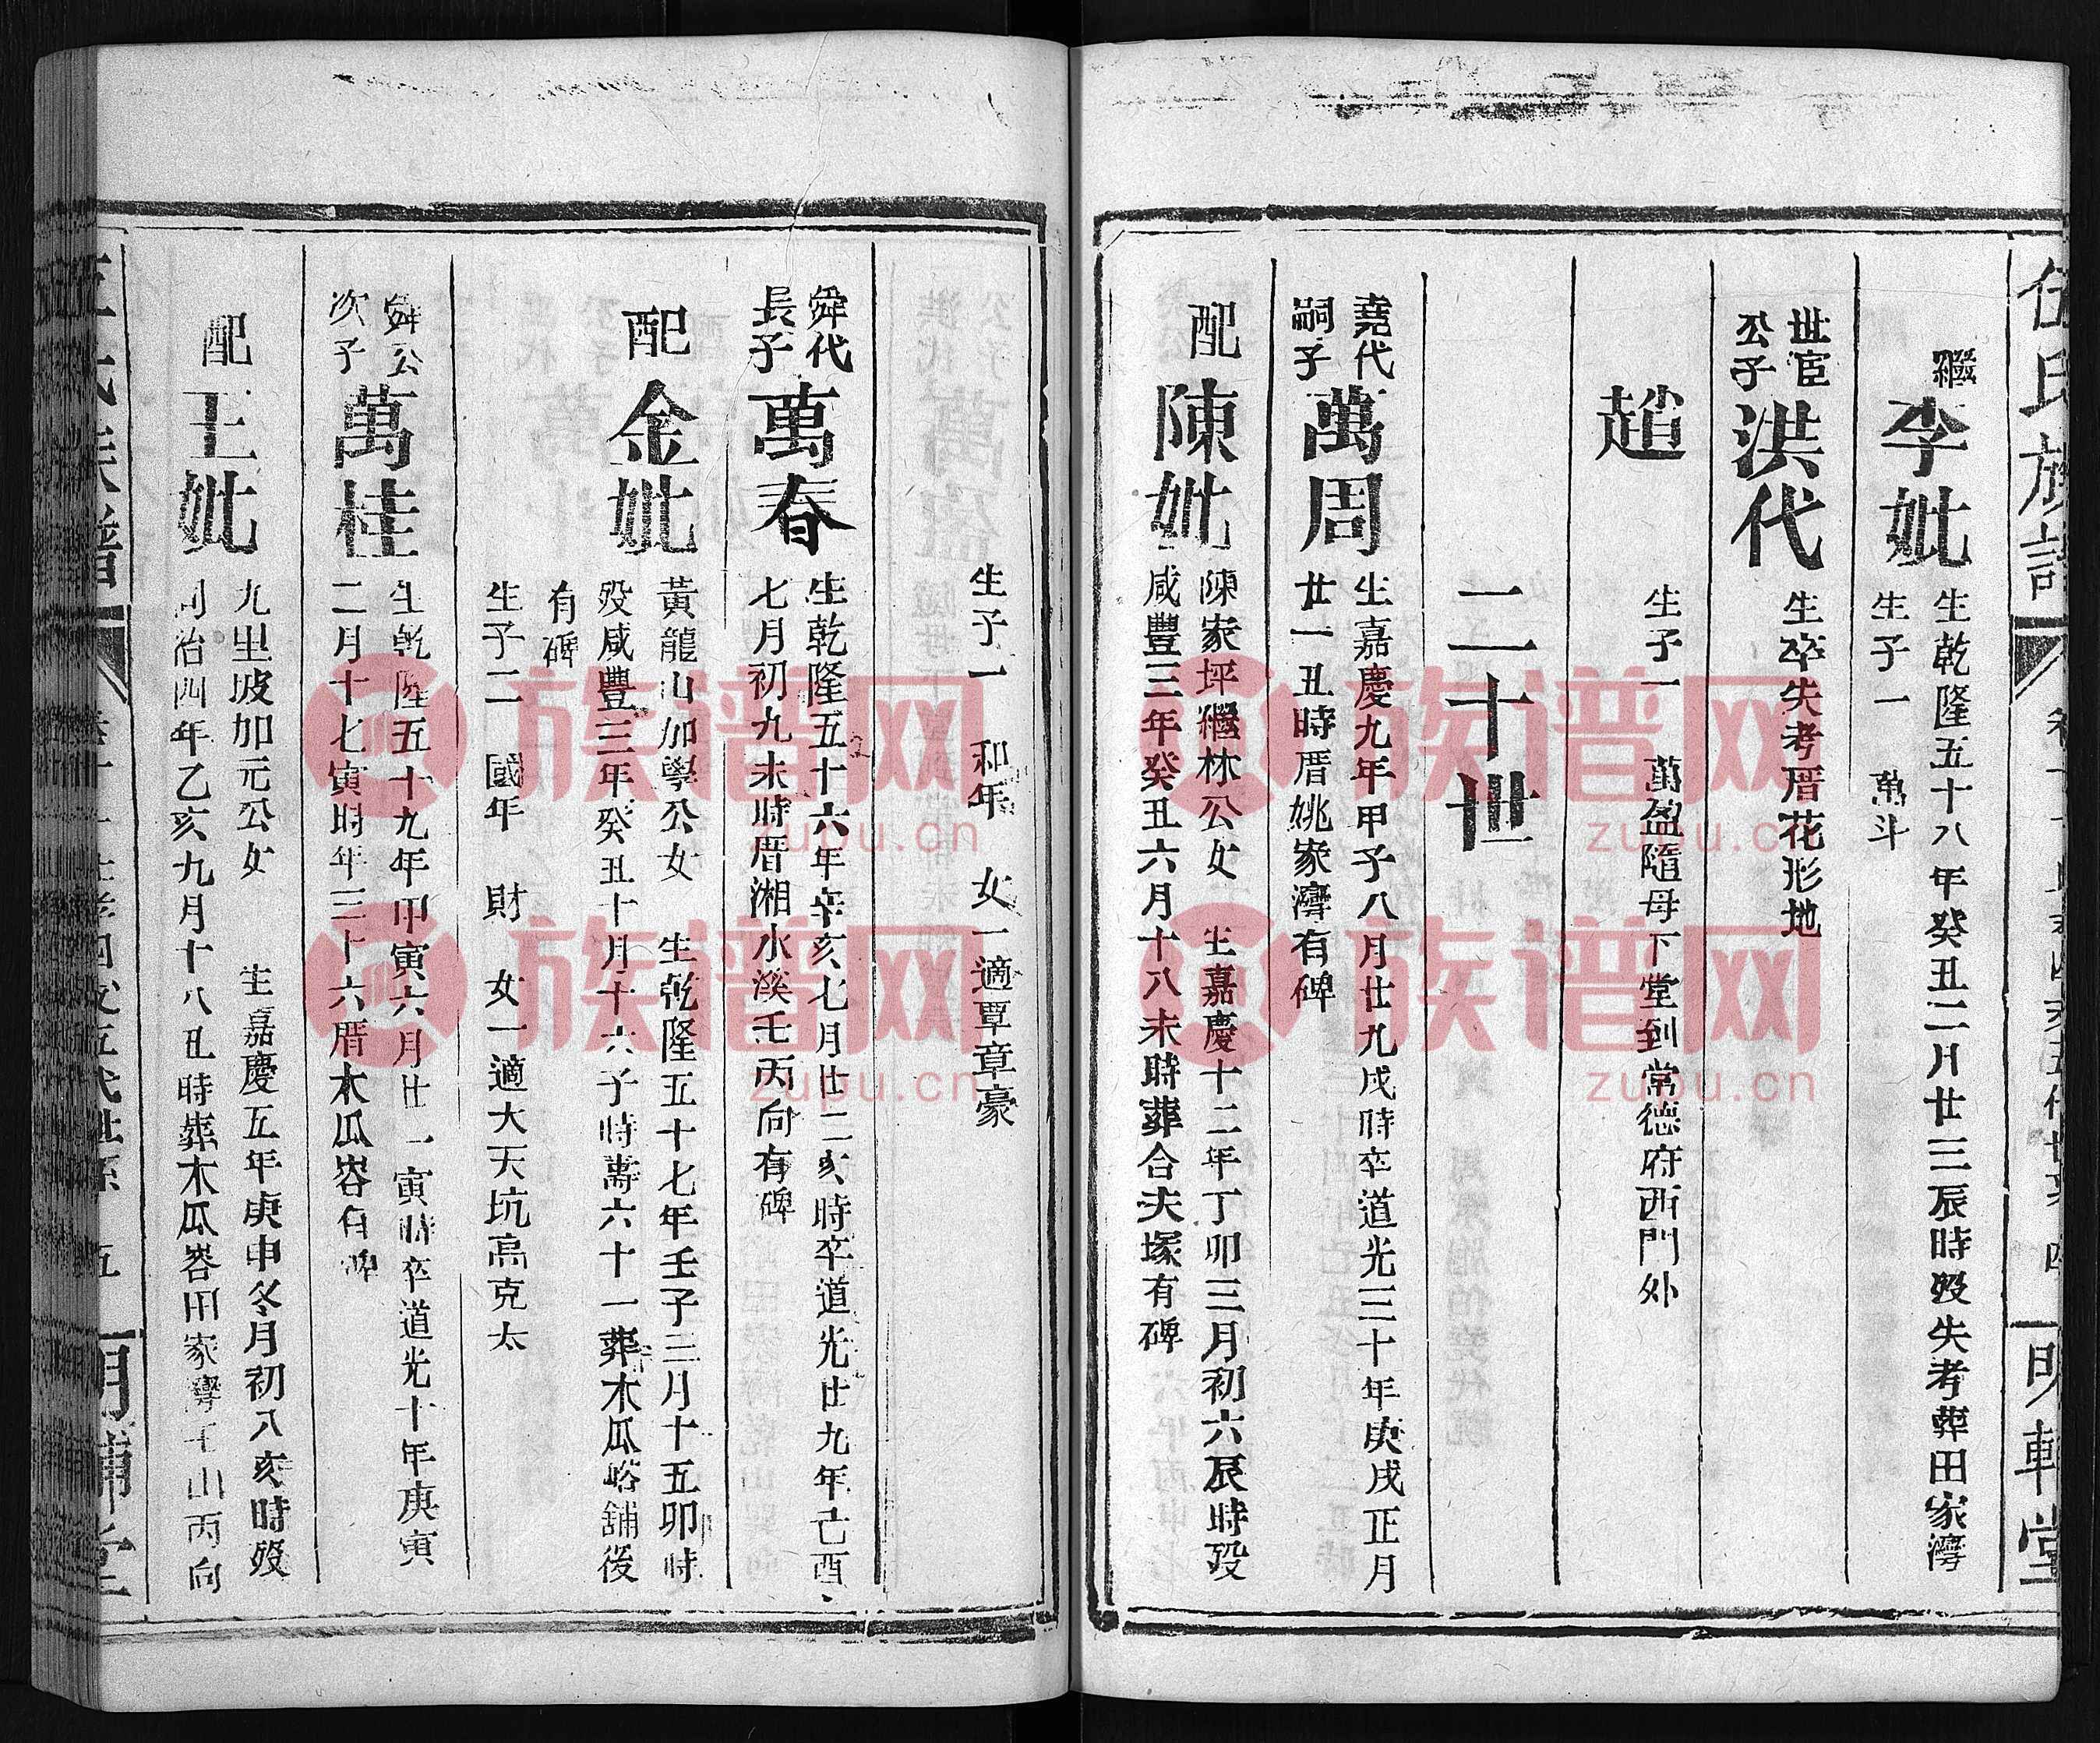 伍氏族譜
明軒堂
繼李妣
生乾隆五十八年癸丑二月廿三辰時歿失考葬田家灣
生子一 萬斗
世宦公子洪代
生卒失考厝花形地
趙
生子一 萬盈隨母下堂到常德府西門外
二十世
堯代嗣子萬周
生嘉慶九年甲子八月廿九戌時卒道光三十年庚戌正月
廿一丑時厝姚家灣有碑
配陳妣
陳家坪繼林公女 生嘉慶十二年丁卯三月初六辰時歿
咸豐三年癸丑六月十八未時葬合夫塚有碑
生子一 和年 女一適覃章豪
舜代長子萬春
生乾隆五十六年辛亥七月廿二亥時卒道光廿九年己酉
七月初九未時厝湘水溪壬丙向有碑
配金妣
黃龍山加學公女 生乾隆五十七年壬子三月十五卯時
歿咸豐三年癸丑十月十六子時壽六十一葬木瓜峪舖後
有碑
生子二 國年 財 女一適大天坑高克太
舜公次子萬桂
生乾隆五十九年甲寅六月廿一寅時卒道光十年庚寅
二月十七寅時年三十六厝木瓜峇有碑
配王妣
九里坡加元公女 生嘉慶五年庚申冬月初八亥時歿
同治四年乙亥九月十八丑時葬木瓜峇田家灣壬山丙向
族谱网
zupu.cn
族谱网
zupu.cn
族谱网
zupu.cn
族谱网
zupu.cn